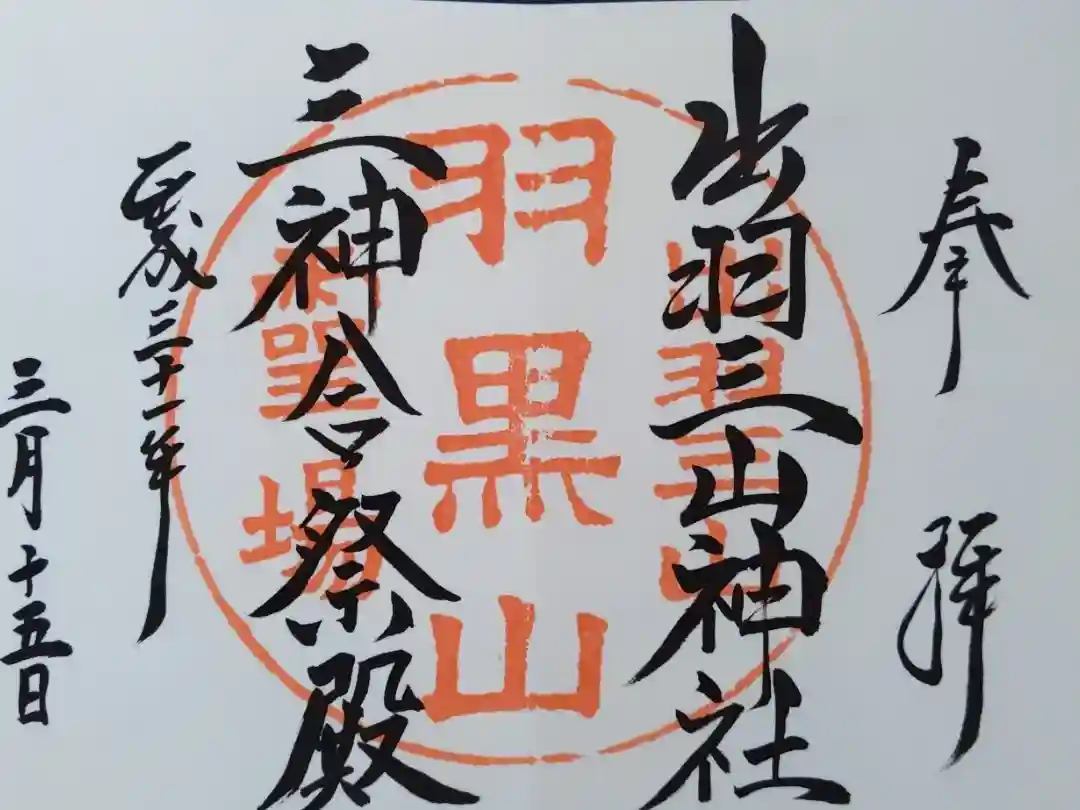 奉拝
出羽三山神社
三神合祭殿
平成三十一年
三月十五日
出羽三山
羽黒山
神聖場